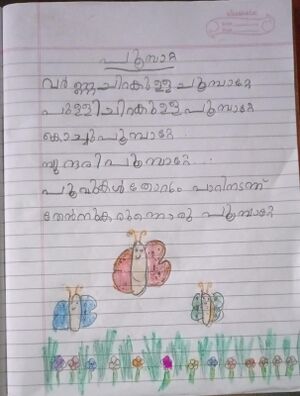 പൂമ്പാറ്റ
വർണ്ണചിറകുള്ള പൂമ്പാറ്റേ
പുള്ളിചിറകുള്ള പൂമ്പാറ്റേ
കൊച്ചുപൂമ്പാറ്റേ
സുന്ദരി പൂമ്പാറ്റേ...
പൂവുകൾ തോറും പാറിനടന്ന്
തേൻനുകരുന്നൊരു പൂമ്പാറ്റേ